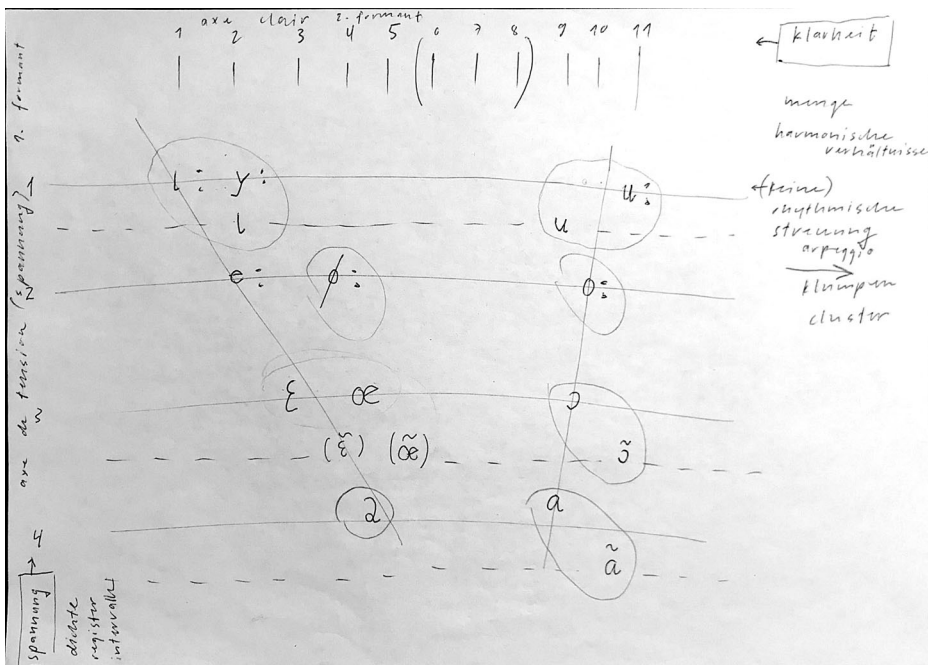 axe clair 2. formant
1 2 3 4 5 (6 7 8) 9 10 11
klarheit
menge
harmonische
verhältnisse
(keine)
rhythmische
streuung
arpeggio
klumpen
cluster
i: y: u:
ɪ u
e: ø: o:
ɛ œ ɔ
(ɛ̃) (œ̃) ɔ̃
a ɑ
ɑ̃
axe de tension (spannung) 1. formant
1
2
3
4
spannung
dichte
register
intervalle